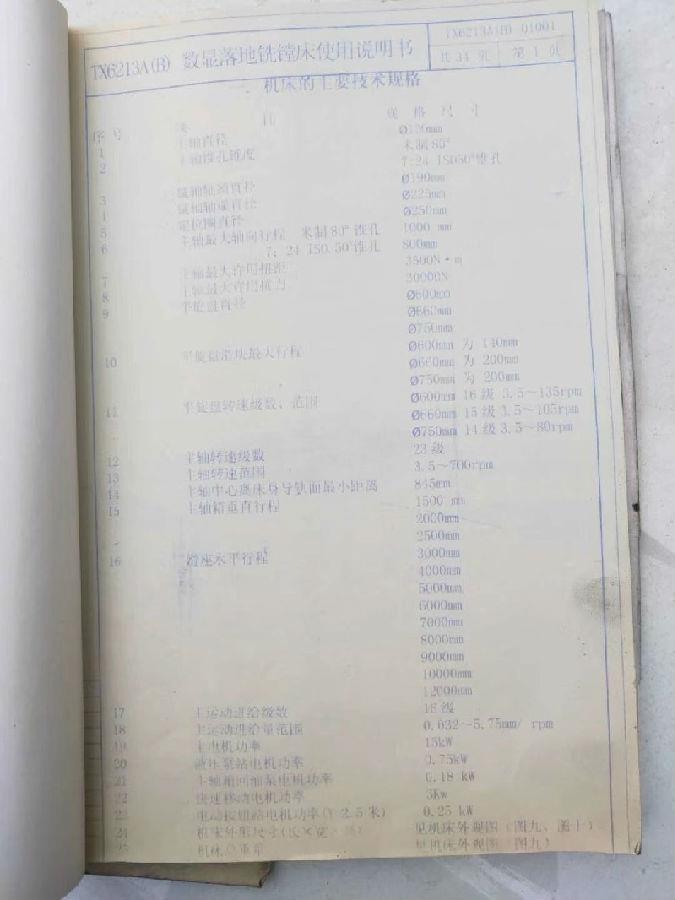 TX6213A(B) 数显落地铣镗床使用说明书
TX6213A(B) 01001
共 34 页 第 1 页
一 机床的主要技术规格
序号 规 格 尺 寸
1 主轴直径 Ø130mm
2 主轴锥孔锥度 米制80°
7:24 ISO50°锥孔
Ø190mm
3 Ø225mm
4 Ø250mm
5 定位圈直径
6 主轴最大轴向行程 米制80°锥孔 1000 mm
7: 24 ISO.50°锥孔 800mm
7 主轴最大许用扭距 3500N·m
8 主轴最大许用抗力 30000N
9 平旋盘直径 Ø600mm
Ø660mm
Ø750mm
10 平旋盘滑块最大行程 Ø600mm 为 140mm
Ø660mm 为 200mm
Ø750mm 为 200mm
11 平旋盘转速级数、范围 Ø600mm 16级 3.5~135rpm
Ø660mm 15级 3.5~105rpm
Ø750mm 14级 3.5~80rpm
12 主轴转速级数 23级
13 主轴转速范围 3.5~700rpm
14 主轴中心离床身导轨面最小距离 845mm
15 主轴箱垂直行程 1500 mm
2000mm
2500mm
16 滑座水平行程 3000mm
4000mm
5000mm
6000mm
7000mm
8000mm
9000mm
10000mm
12000mm
17 主运动进给级数 18级
18 主运动进给量范围 0.032~5.75mm/ rpm
19 主电机功率 15kW
20 液压泵站电机功率 0.75kW
21 主轴箱回油泵电机功率 0.18 kW
22 快速移动电机功率 3Kw
23 电动按钮站电机功率(Y≥2.5米) 0.25 kW
24 机床外形尺寸(长×宽×高) 见机床外观图 (图九、图十)
25 机床总重量 见机床外观图 (图九)